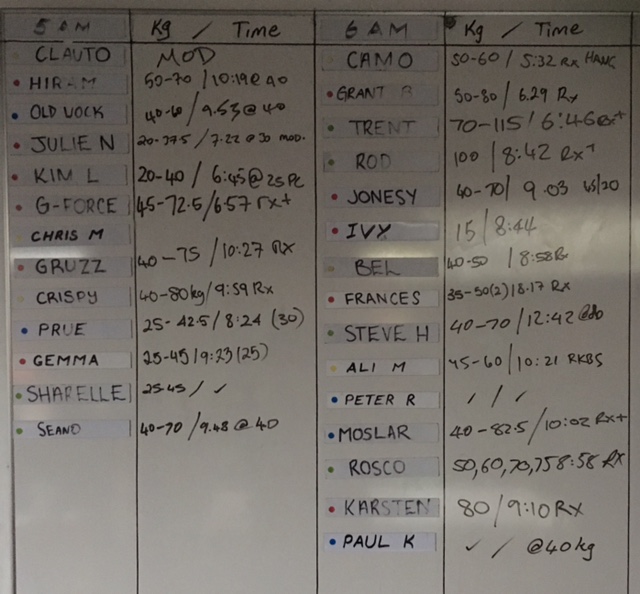 5 AM Kg / Time
CLAUTO MOD
HIRAM 50-70 / 10:19 @ 40
OLD VOCK 40-60 / 9.53 @ 40
JULIE N 20-37.5 / 7.22 @ 30 MOD.
KIM L 20-40 / 6:45 @ 25 PC
G-FORCE 45-72.5/6:57 rx+
CHRIS M
GRUZZ 40-75 / 10:27 RX
CRISPY 40-80kg/9:59 Rx
PRUE 25-42.5/8:24 (30)
GEMMA 25-45/9:23(25)
SHARELLE 25-45 / ✓
SEANO 40-70 / 9.48 @ 40
6 AM Kg / Time
CAMO 50-60 / 5:32 Rx
GRANT B 50-80 / 6.29 Rx
TRENT 70-115/6:46 Rx+
ROD 100 / 8:42 RX+
JONESY 40-70/ 9.03
IVY 15/8:44
BEL 40-50 / 8:58 Rx
FRANCES 35-50(2)/8.17 RX
STEVE H 40-70/12:42
ALI M 45-60/10:21 RKBS
PETER R ✓ / ✓
MOSLAR 40-82.5/10:02 RX+
ROSCO 50,60,70,75 8:58 RX
KARSTEN 80/9:10 RX
PAUL K ✓ / @40kg